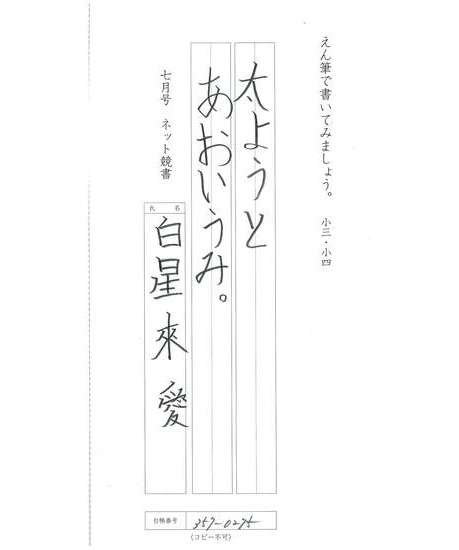 えん筆で書いてみましょう。 小三・小四
太ようと
あおいうみ。
七月号 ネット競書
氏 名
白星來愛
台帳番号 357-0275
(コピー不可)